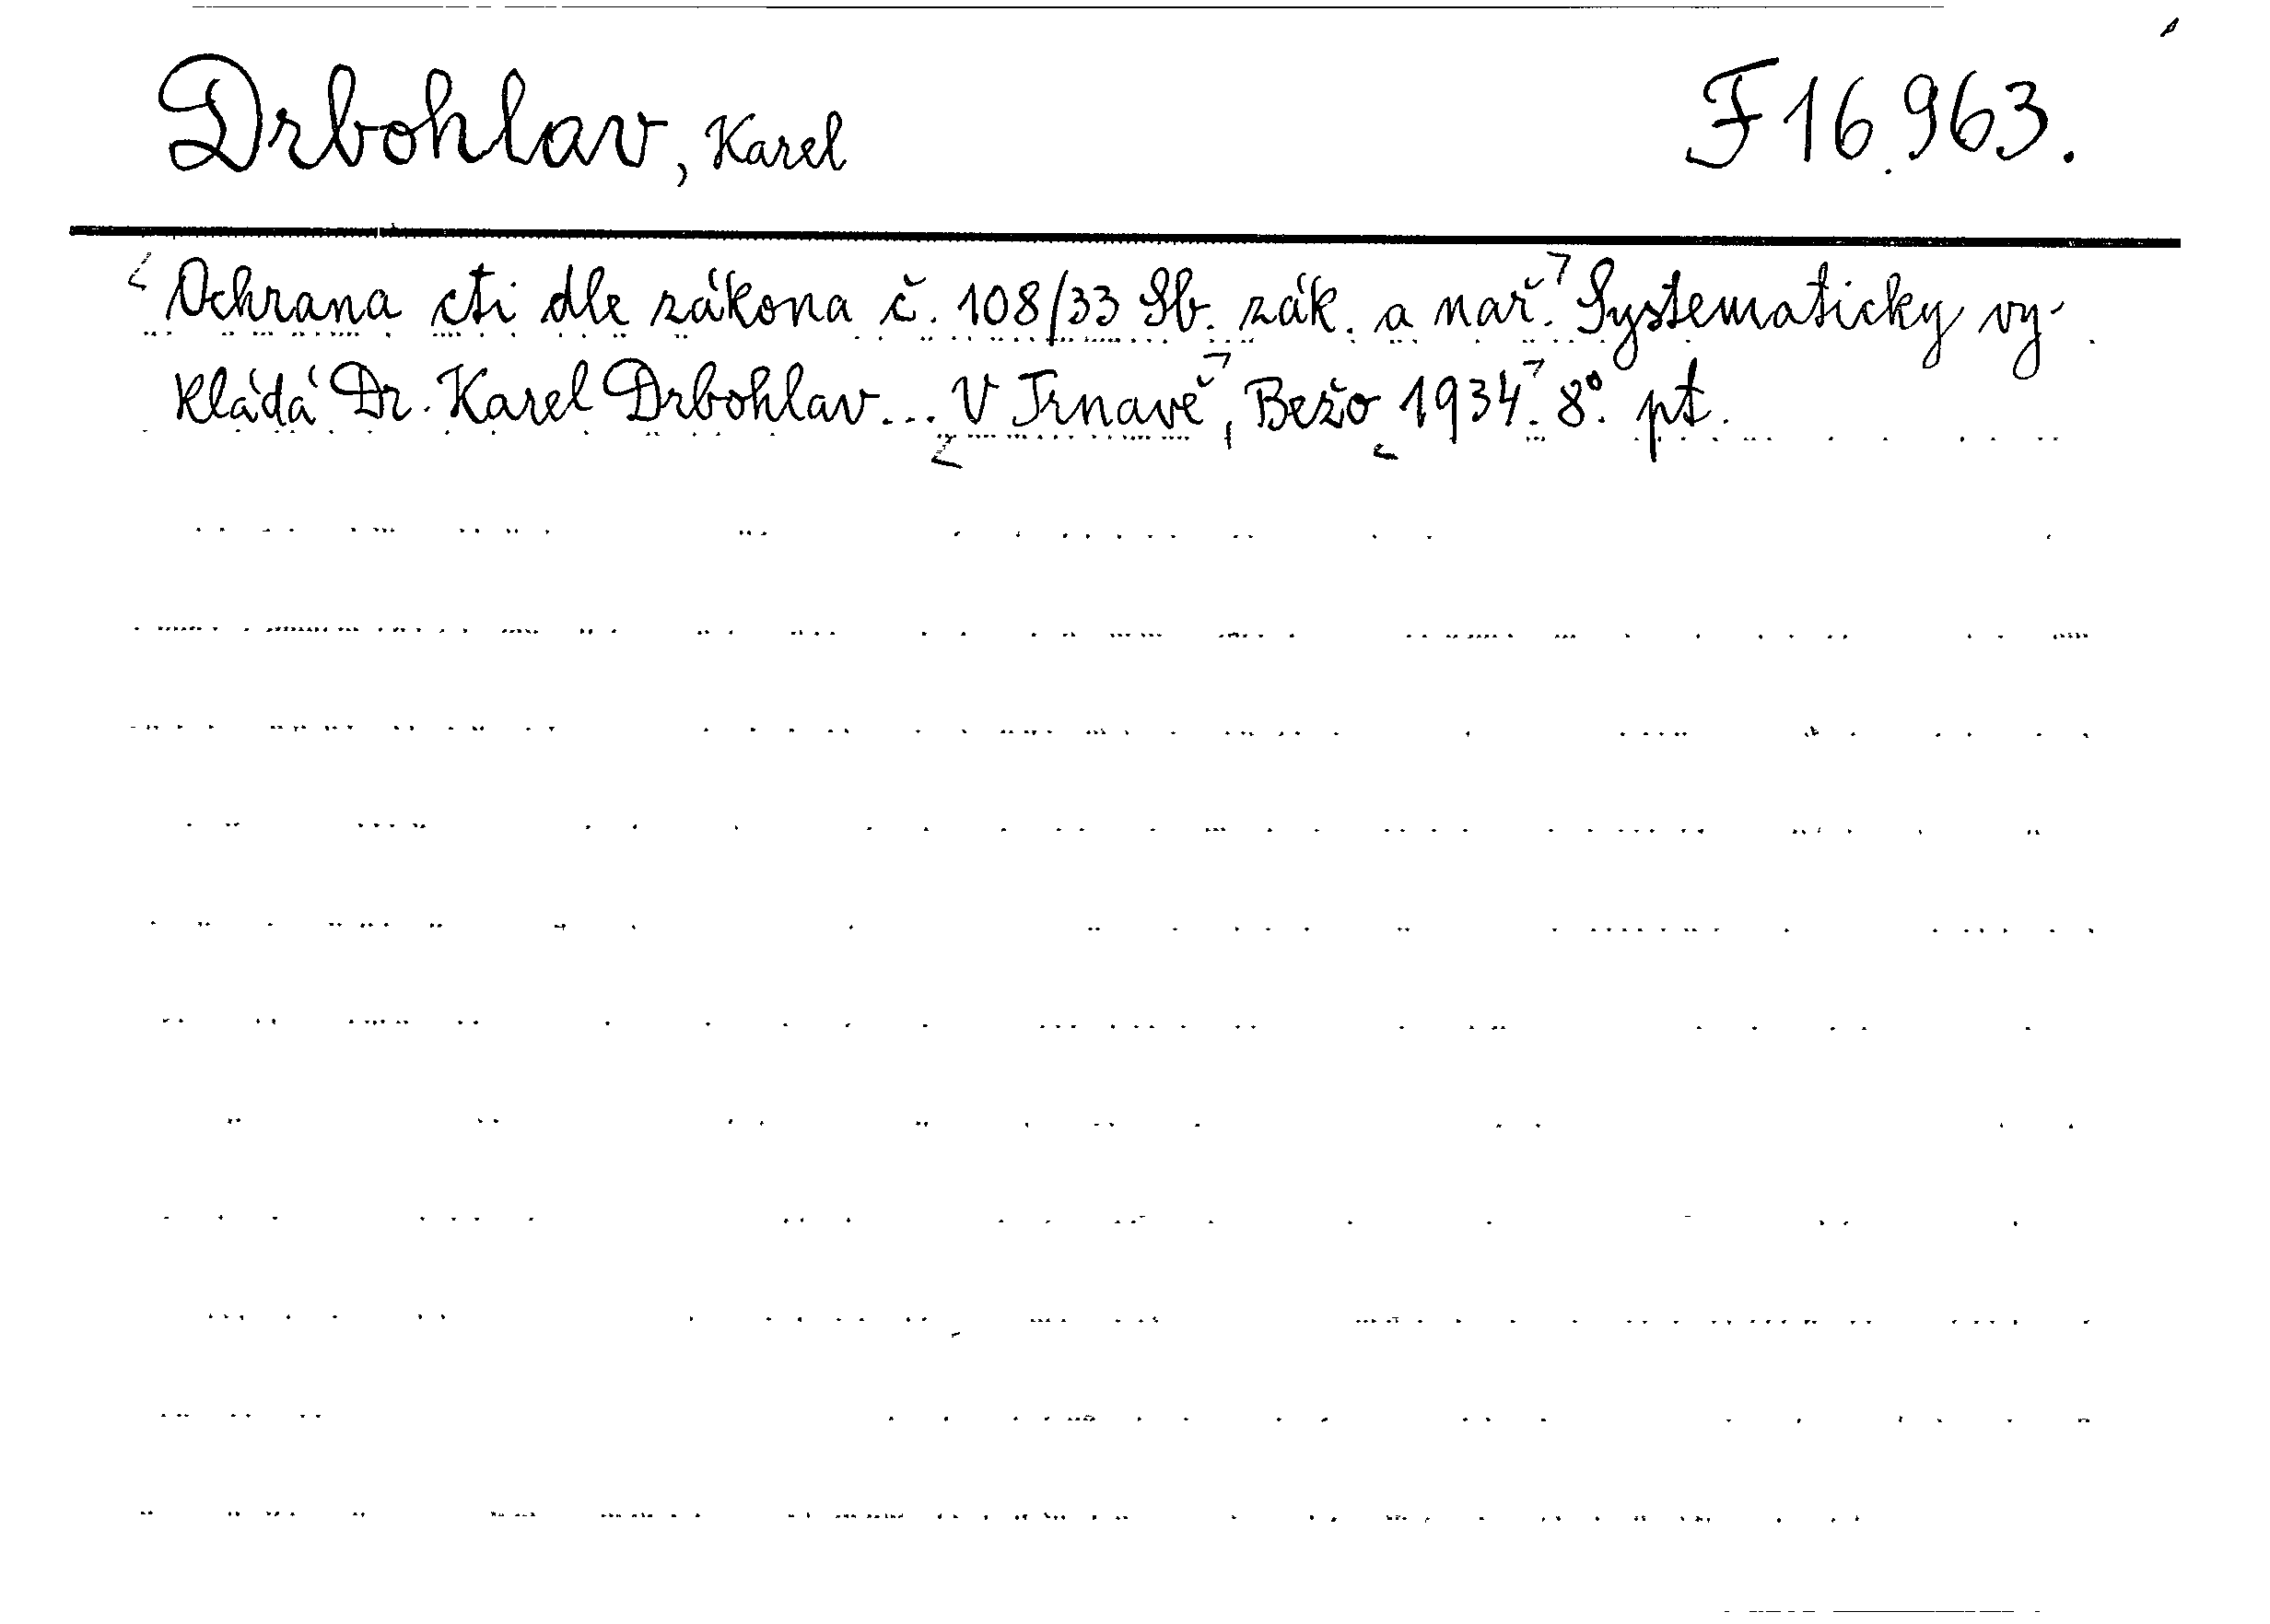 Drbohlav, Karel
F 16.963.
Ochrana cti dle zákona č. 108/33 Sb. zák. a nař. Systematicky vy-
kládá Dr. Karel Drbohlav... V Trnavě, Bežo 1934. 8°. pt.